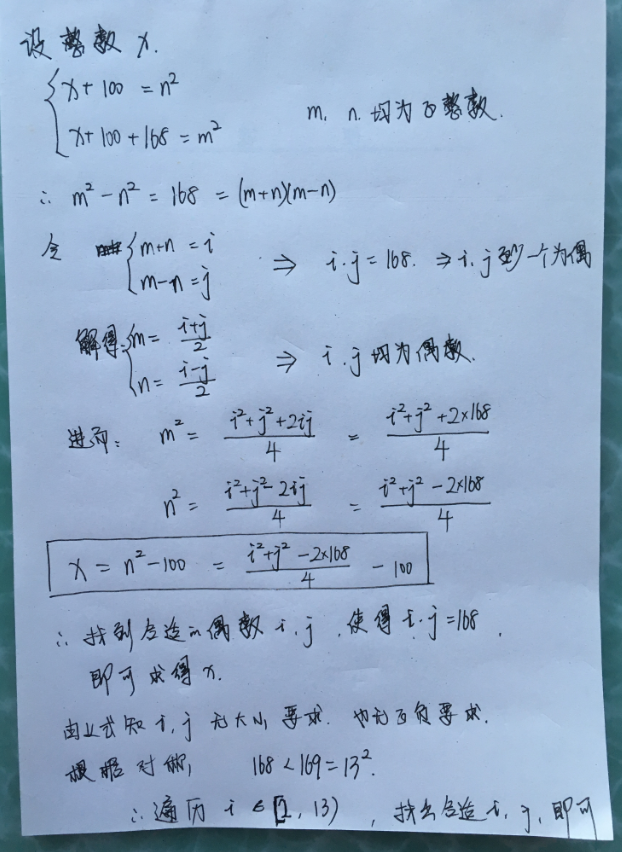 设整数 x.
x+100 = n²
x+100+168 = m²
m, n 均为正整数.
∴ m²-n² = 168 = (m+n)(m-n)
令 { m+n = i
m-n = j
⇒ i·j = 168. ⇒ i, j 至少一个为偶
解得: { m = (i+j)/2
n = (i-j)/2
⇒ i, j 均为偶数.
进而: m² = (i²+j²+2ij)/4 = (i²+j²+2×168)/4
n² = (i²+j²-2ij)/4 = (i²+j²-2×168)/4
x = n²-100 = (i²+j²-2×168)/4 - 100
∴ 找到合适的偶数 i, j, 使得 i·j=168,
即可求得 x.
由上式知 i, j 无大小要求. 也无正负要求.
根据对称, 168<169=13².
∴ 遍历 i ∈ [2, 13), 找出合适 i, j, 即可